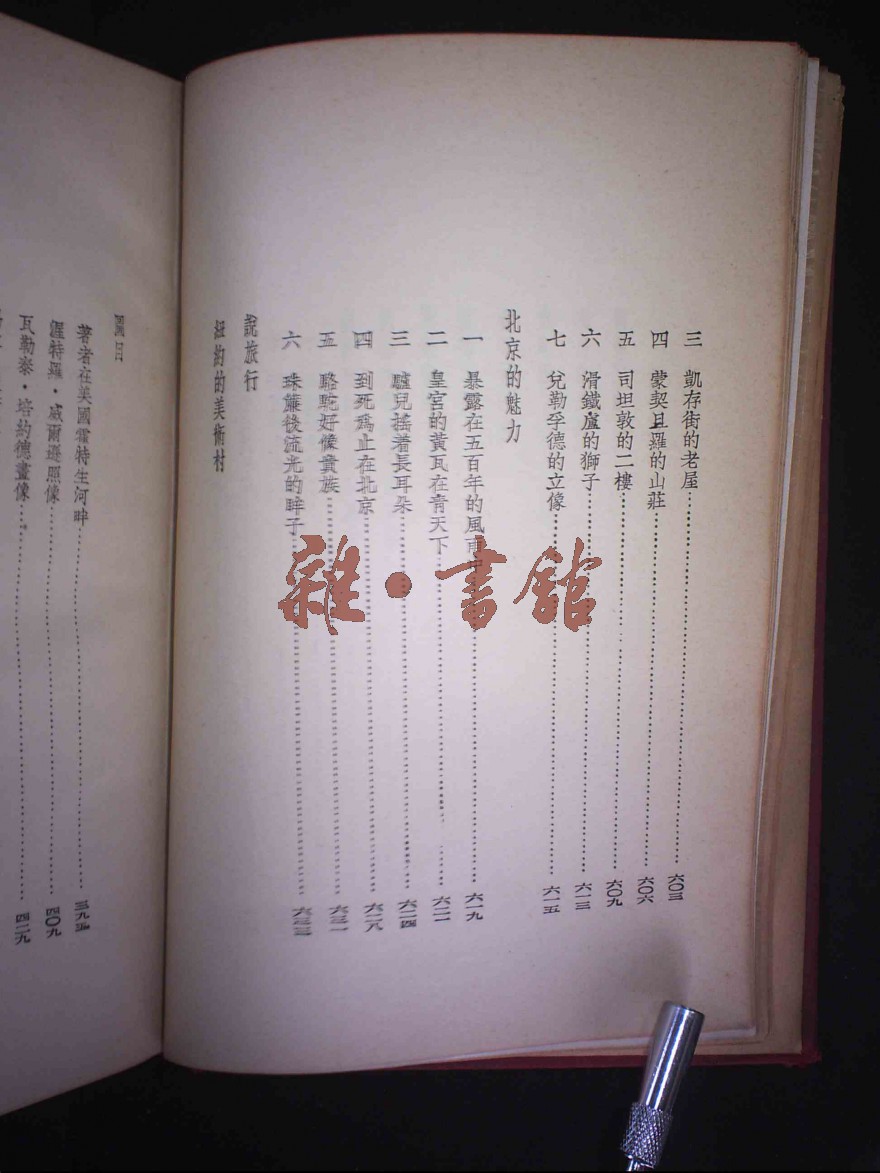 三　凱存街的老屋……六〇三
四　蒙契且羅的山莊……六〇六
五　司坦敦的二樓……六〇九
六　滑鐵盧的獅子……六一三
七　兌勒孚德的立像……六一五
北京的魅力
一　暴露在五百年的風雨……六一九
二　皇宮的黃瓦在青天下……六二二
三　驢兒搖着長耳朵……六二四
四　到死爲止在北京……六二八
五　駱駝好像貴族……六三一
六　珠簾後流光的眸子……六三三
說旅行
紐約的美術村
圖目
著者在美國霍特生河畔……三九五
渥特羅·威爾遜照像……四〇九
瓦勒泰·培約德畫像……四二九
雜·書館